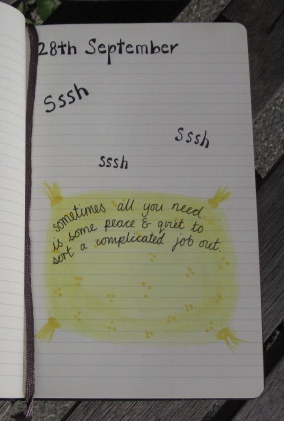 28th September
Sssh
Sssh
sssh
sometimes all you need
is some peace & quiet to
sort a complicated job out.